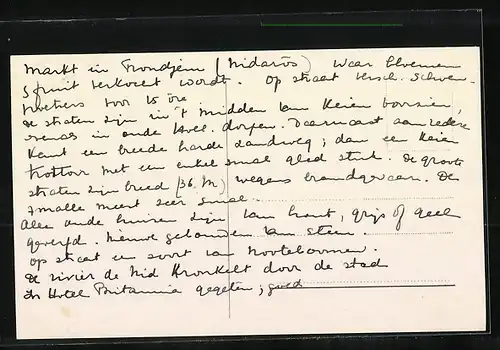 Markt in Trondjem (Nidaros) waar bloemen
& fruit verkocht wordt. Op straat versch. schoen-
poetsers voor 15 öre
De straten zijn in 't midden van keien voorzien,
evenals in oude dorpen. Daarnaast aan iedere
kant een breede harde zandweg; dan een keien
trottoir met een enkel smal glad stuk. De groote
straten zijn breed (36 M.) wegens brandgevaar. De
smalle meest zeer smal.
Alle oude huizen zijn van hout, grijs of geel
geverfd. Nieuwe gebouwen van steen.
Op straat een soort van notebomen.
De rivier de Nid kronkelt door de stad
In Hotel Britannia gegeten; goed